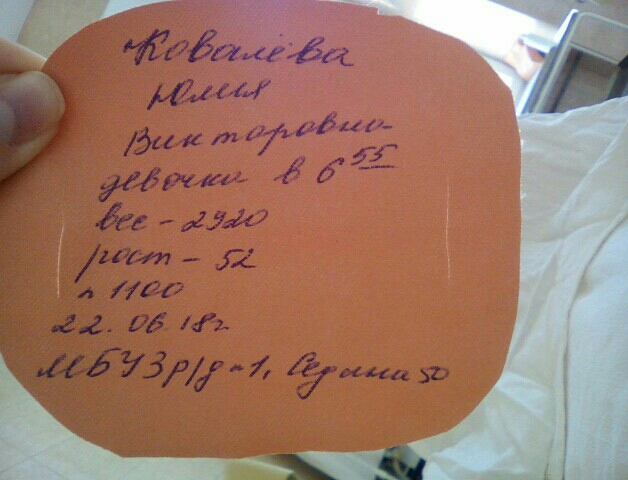 Ковалёва
Юлия
Викторовна
девочка в 6 55
вес - 2920
рост - 52
n 1100
22.06.18г
МБУЗ р/д n 1, Седина 50